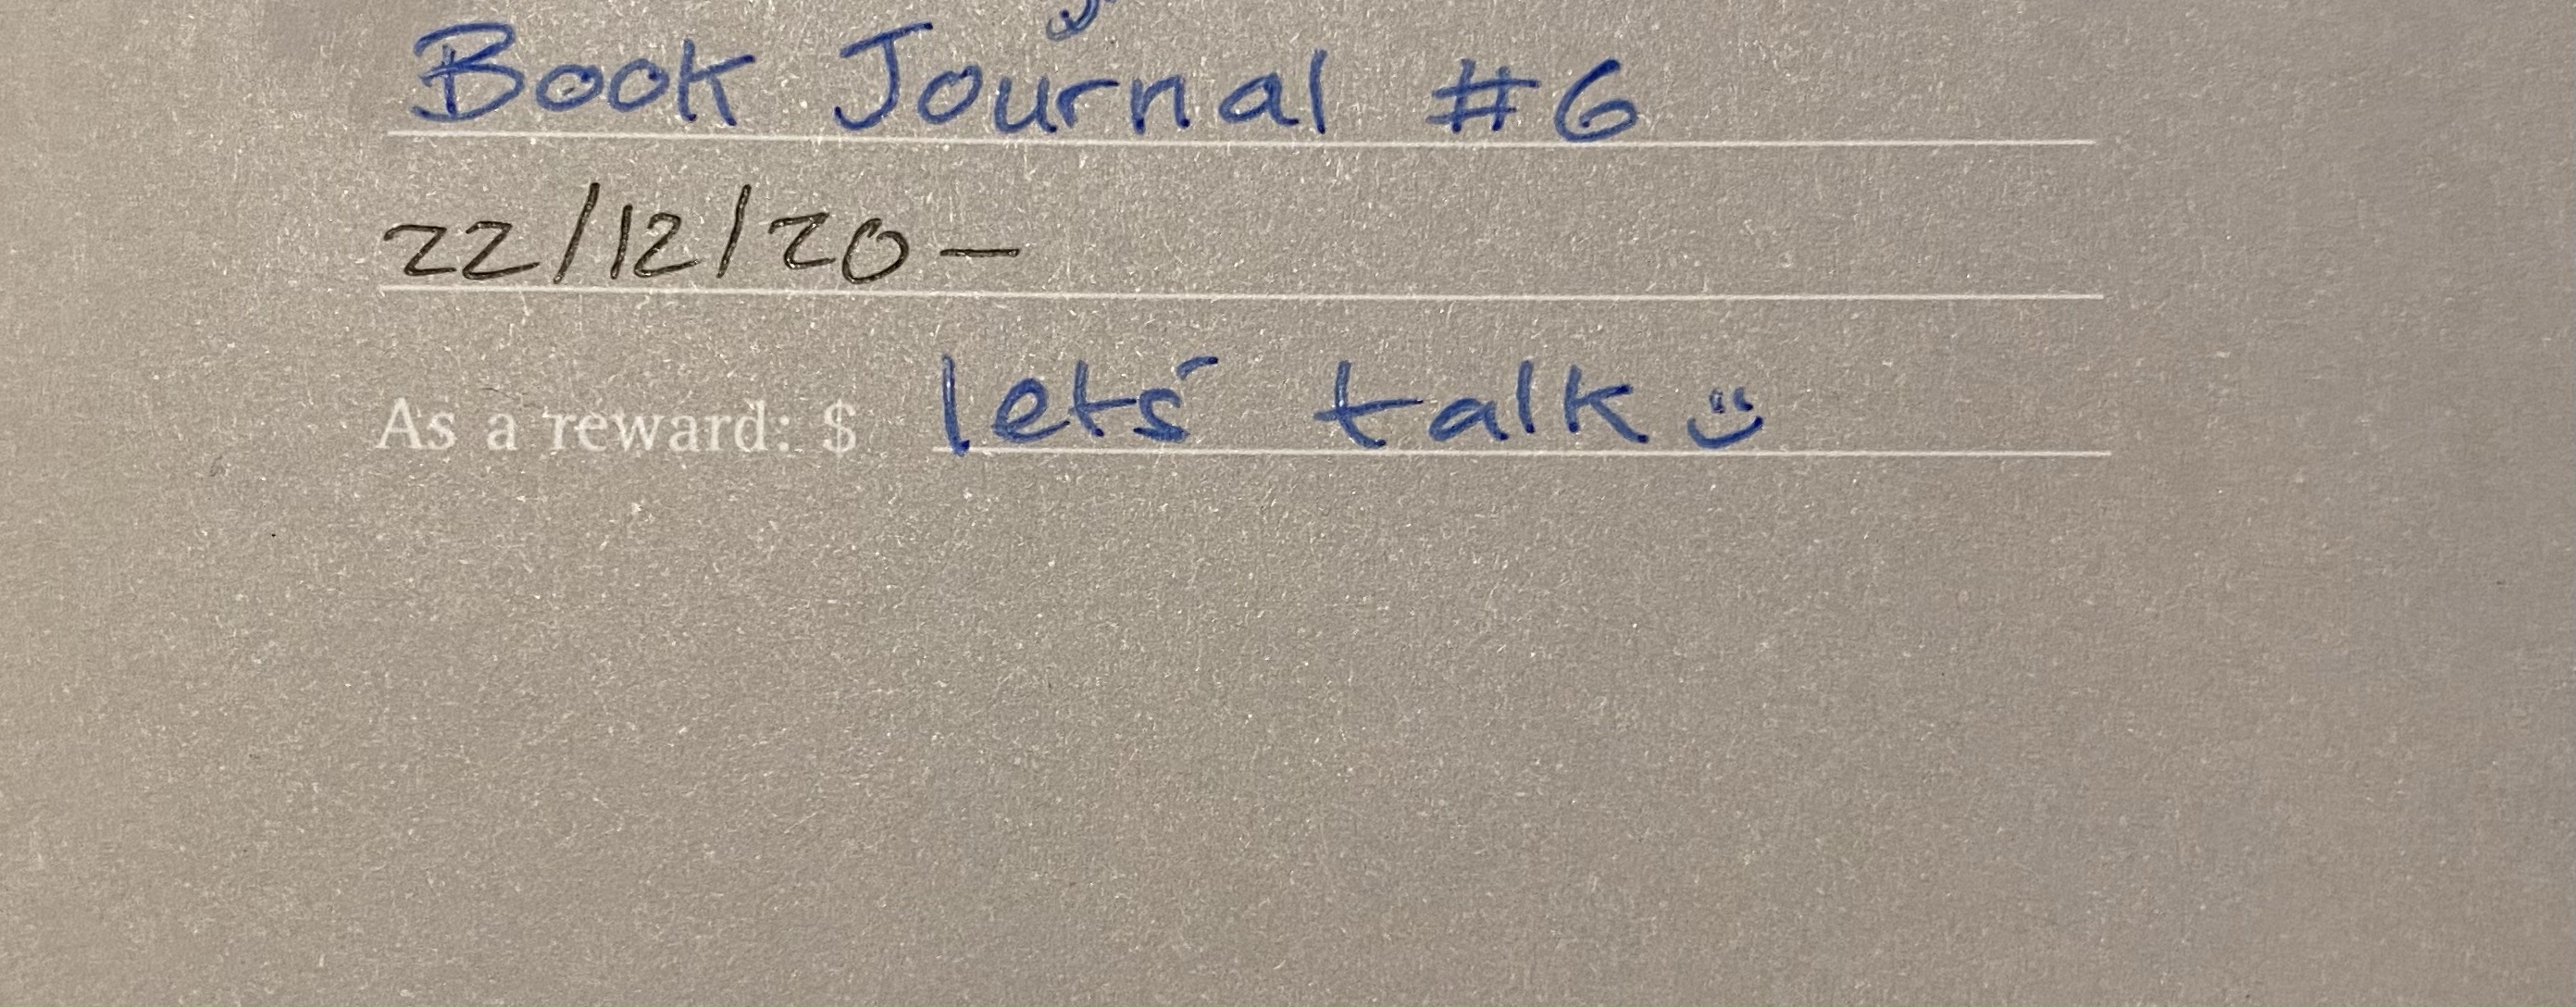 Book Journal #6
22/12/20 —
As a reward: $ lets talk